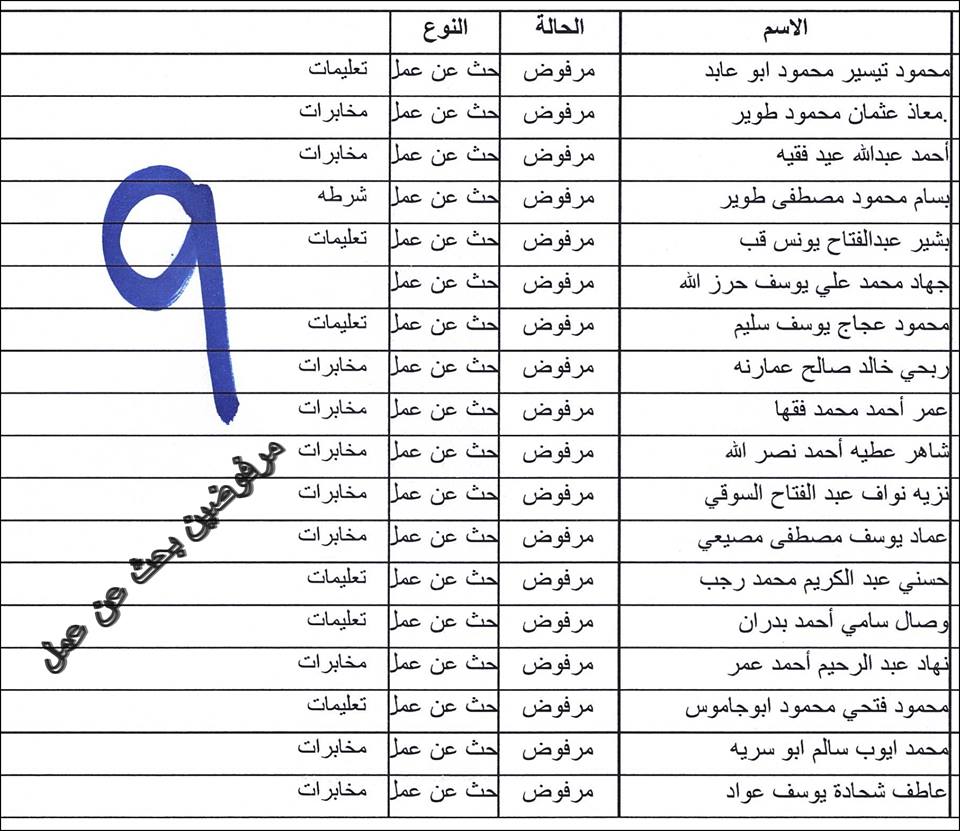 الاسم الحالة النوع
محمود تيسير محمود ابو عابد مرفوض حث عن عمل تعليمات
.معاذ عثمان محمود طوير مرفوض حث عن عمل مخابرات
أحمد عبدالله عيد فقيه مرفوض حث عن عمل مخابرات
بسام محمود مصطفى طوير مرفوض حث عن عمل شرطه
بشير عبدالفتاح يونس قب مرفوض حث عن عمل تعليمات
جهاد محمد علي يوسف حرز الله مرفوض حث عن عمل
محمود عجاج يوسف سليم مرفوض حث عن عمل تعليمات
ربحي خالد صالح عمارنه مرفوض حث عن عمل مخابرات
عمر أحمد محمد فقها مرفوض حث عن عمل مخابرات
شاهر عطيه أحمد نصر الله مرفوض حث عن عمل مخابرات
نزيه نواف عبد الفتاح السوقي مرفوض حث عن عمل مخابرات
عماد يوسف مصطفى مصيعي مرفوض حث عن عمل مخابرات
حسني عبد الكريم محمد رجب مرفوض حث عن عمل تعليمات
وصال سامي أحمد بدران مرفوض حث عن عمل تعليمات
نهاد عبد الرحيم أحمد عمر مرفوض حث عن عمل مخابرات
محمود فتحي محمود ابوجاموس مرفوض حث عن عمل تعليمات
محمد ايوب سالم ابو سريه مرفوض حث عن عمل مخابرات
عاطف شحادة يوسف عواد مرفوض حث عن عمل مخابرات
٩
مرفوضين بحث عن عمل